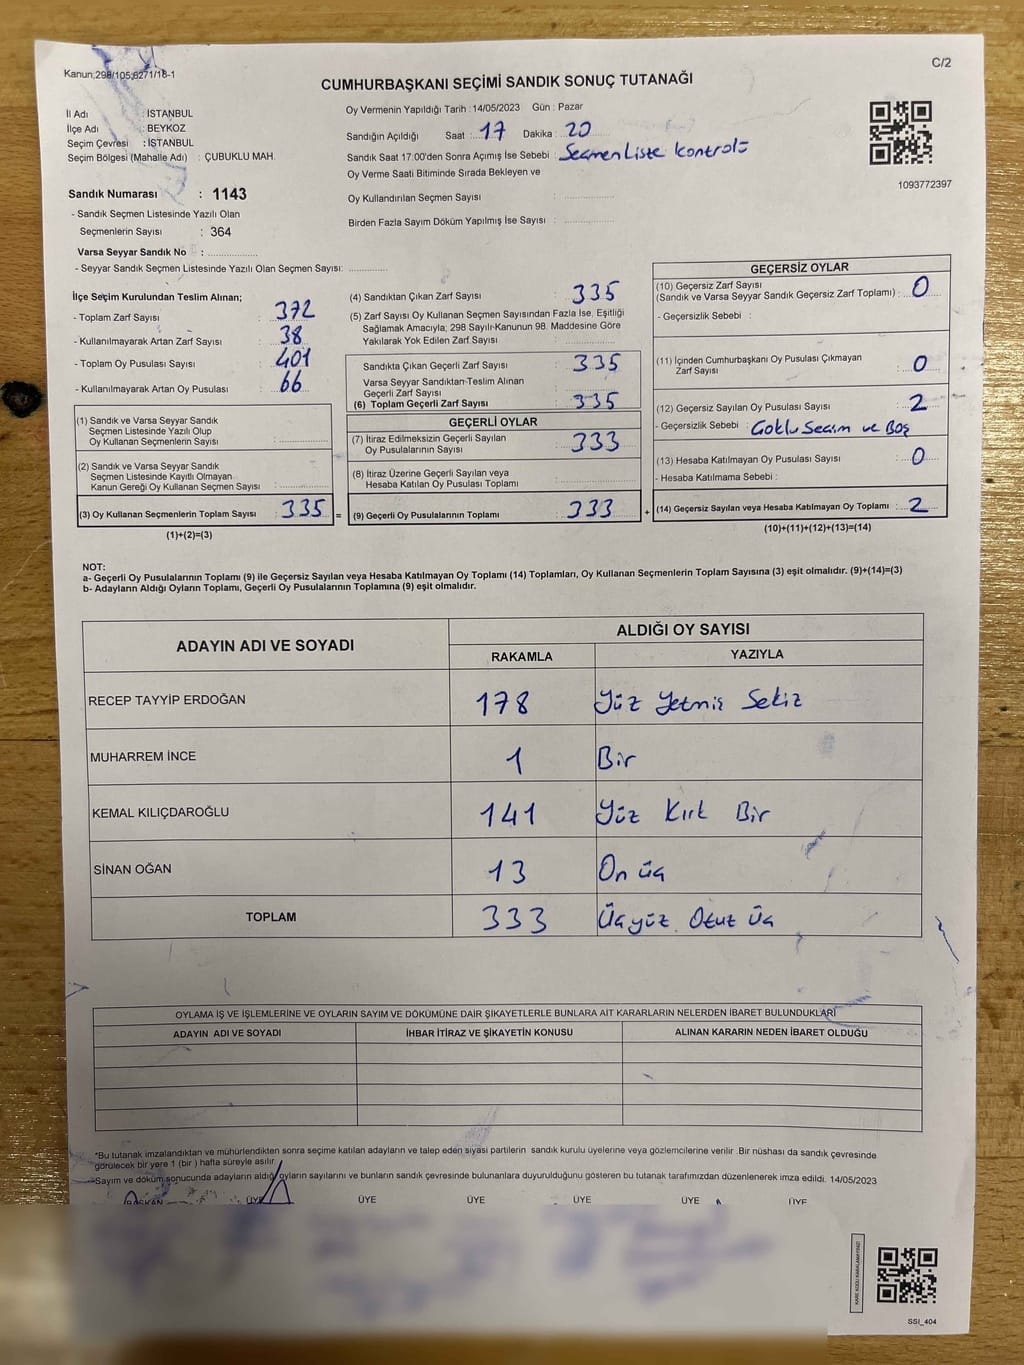 Kanun;298/105;6271/18-1
C/2
CUMHURBAŞKANI SEÇİMİ SANDIK SONUÇ TUTANAĞI
İl Adı : İSTANBUL
İlçe Adı : BEYKOZ
Seçim Çevresi : İSTANBUL
Seçim Bölgesi (Mahalle Adı) : ÇUBUKLU MAH.
Oy Vermenin Yapıldığı Tarih : 14/05/2023 Gün : Pazar
Sandığın Açıldığı Saat : 17 Dakika : 20
Sandık Saat 17:00'den Sonra Açımış İse Sebebi : Seçmen Liste kontrolü
Oy Verme Saati Bitiminde Sırada Bekleyen ve
Oy Kullandırılan Seçmen Sayısı :
Birden Fazla Sayım Döküm Yapılmış İse Sayısı :
1093772397
Sandık Numarası : 1143
- Sandık Seçmen Listesinde Yazılı Olan
Seçmenlerin Sayısı : 364
Varsa Seyyar Sandık No :
- Seyyar Sandık Seçmen Listesinde Yazılı Olan Seçmen Sayısı:
İlçe Seçim Kurulundan Teslim Alınan;
- Toplam Zarf Sayısı : 372
- Kullanılmayarak Artan Zarf Sayısı : 38
- Toplam Oy Pusulası Sayısı : 401
- Kullanılmayarak Artan Oy Pusulası : 66
(1) Sandık ve Varsa Seyyar Sandık
Seçmen Listesinde Yazılı Olup
Oy Kullanan Seçmenlerin Sayısı :
(2) Sandık ve Varsa Seyyar Sandık
Seçmen Listesinde Kayıtlı Olmayan
Kanun Gereği Oy Kullanan Seçmen Sayısı :
(3) Oy Kullanan Seçmenlerin Toplam Sayısı : 335 =
(1)+(2)=(3)
(4) Sandıktan Çıkan Zarf Sayısı : 335
(5) Zarf Sayısı Oy Kullanan Seçmen Sayısından Fazla İse, Eşitliği
Sağlamak Amacıyla; 298 Sayılı Kanunun 98. Maddesine Göre
Yakılarak Yok Edilen Zarf Sayısı :
Sandıkta Çıkan Geçerli Zarf Sayısı : 335
Varsa Seyyar Sandıktan Teslim Alınan
Geçerli Zarf Sayısı :
(6) Toplam Geçerli Zarf Sayısı : 335
GEÇERLİ OYLAR
(7) İtiraz Edilmeksizin Geçerli Sayılan
Oy Pusulalarının Sayısı : 333
(8) İtiraz Üzerine Geçerli Sayılan veya
Hesaba Katılan Oy Pusulası Toplamı :
(9) Geçerli Oy Pusulalarının Toplamı : 333 +
GEÇERSİZ OYLAR
(10) Geçersiz Zarf Sayısı
(Sandık ve Varsa Seyyar Sandık Geçersiz Zarf Toplamı) : 0
- Geçersizlik Sebebi :
(11) İçinden Cumhurbaşkanı Oy Pusulası Çıkmayan
Zarf Sayısı : 0
(12) Geçersiz Sayılan Oy Pusulası Sayısı : 2
- Geçersizlik Sebebi : Çoklu Seçim ve Boş
(13) Hesaba Katılmayan Oy Pusulası Sayısı : 0
- Hesaba Katılmama Sebebi :
(14) Geçersiz Sayılan veya Hesaba Katılmayan Oy Toplamı : 2
(10)+(11)+(12)+(13)=(14)
NOT:
a- Geçerli Oy Pusulalarının Toplamı (9) ile Geçersiz Sayılan veya Hesaba Katılmayan Oy Toplamı (14) Toplamları, Oy Kullanan Seçmenlerin Toplam Sayısına (3) eşit olmalıdır. (9)+(14)=(3)
b- Adayların Aldığı Oyların Toplamı, Geçerli Oy Pusulalarının Toplamına (9) eşit olmalıdır.
ADAYIN ADI VE SOYADI ALDIĞI OY SAYISI
RAKAMLA YAZIYLA
RECEP TAYYİP ERDOĞAN 178 Yüz Yetmiş Sekiz
MUHARREM İNCE 1 Bir
KEMAL KILIÇDAROĞLU 141 Yüz Kırk Bir
SİNAN OĞAN 13 On üç
TOPLAM 333 Üçyüz Otuz Üç
OYLAMA İŞ VE İŞLEMLERİNE VE OYLARIN SAYIM VE DÖKÜMÜNE DAİR ŞİKAYETLERLE BUNLARA AİT KARARLARIN NELERDEN İBARET BULUNDUKLARI
ADAYIN ADI VE SOYADI İHBAR İTİRAZ VE ŞİKAYETİN KONUSU ALINAN KARARIN NEDEN İBARET OLDUĞU
*Bu tutanak imzalandıktan ve mühürlendikten sonra seçime katılan adayların ve talep eden siyasi partilerin sandık kurulu üyelerine veya gözlemcilerine verilir .Bir nüshası da sandık çevresinde
görülecek bir yere 1 (bir ) hafta süreyle asılır.
*Sayım ve döküm sonucunda adayların aldığı oyların sayılarını ve bunların sandık çevresinde bulunanlara duyurulduğunu gösteren bu tutanak tarafımızdan düzenlenerek imza edildi. 14/05/2023
BAŞKAN ÜYE ÜYE ÜYE ÜYE ÜYE ÜYE
SSI_404